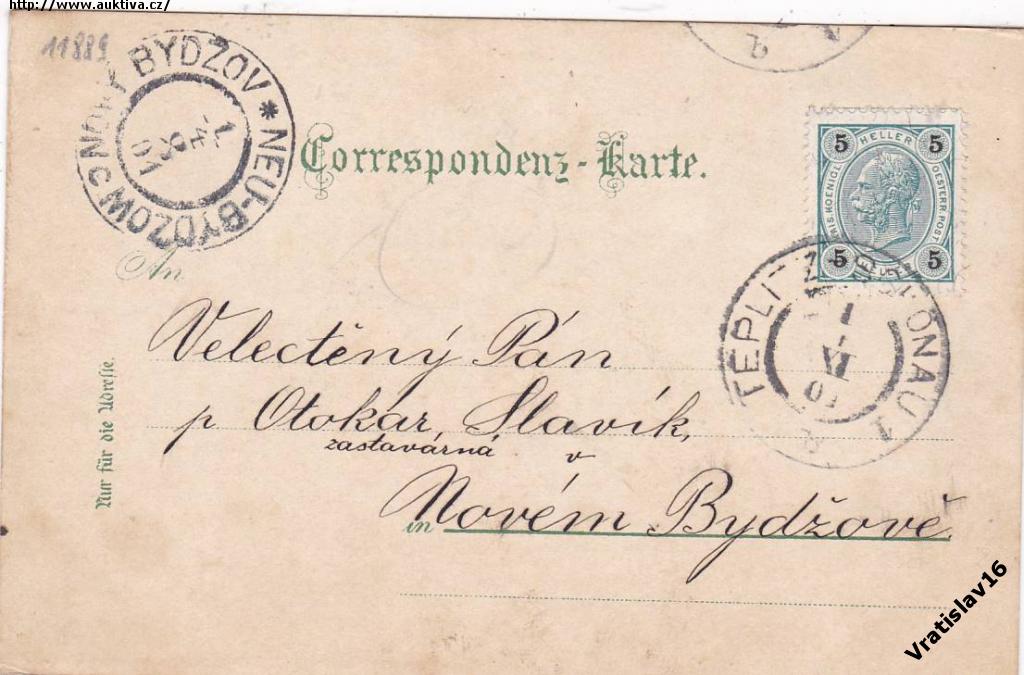 http://www.auktiva.cz/
11889
NOVÝ BYDŽOV * NEU-BYDZOW
Correspondenz-Karte.
5 HELLER 5
KAIS. KOENIGL. OESTERR. POST
5 5
An
TEPLITZ SCHÖNAU 1
Velectěný Pán
p Otokar Slavík,
zastavárna v
in Novém Bydžově
Nur für die Adresse.
Vratislav16